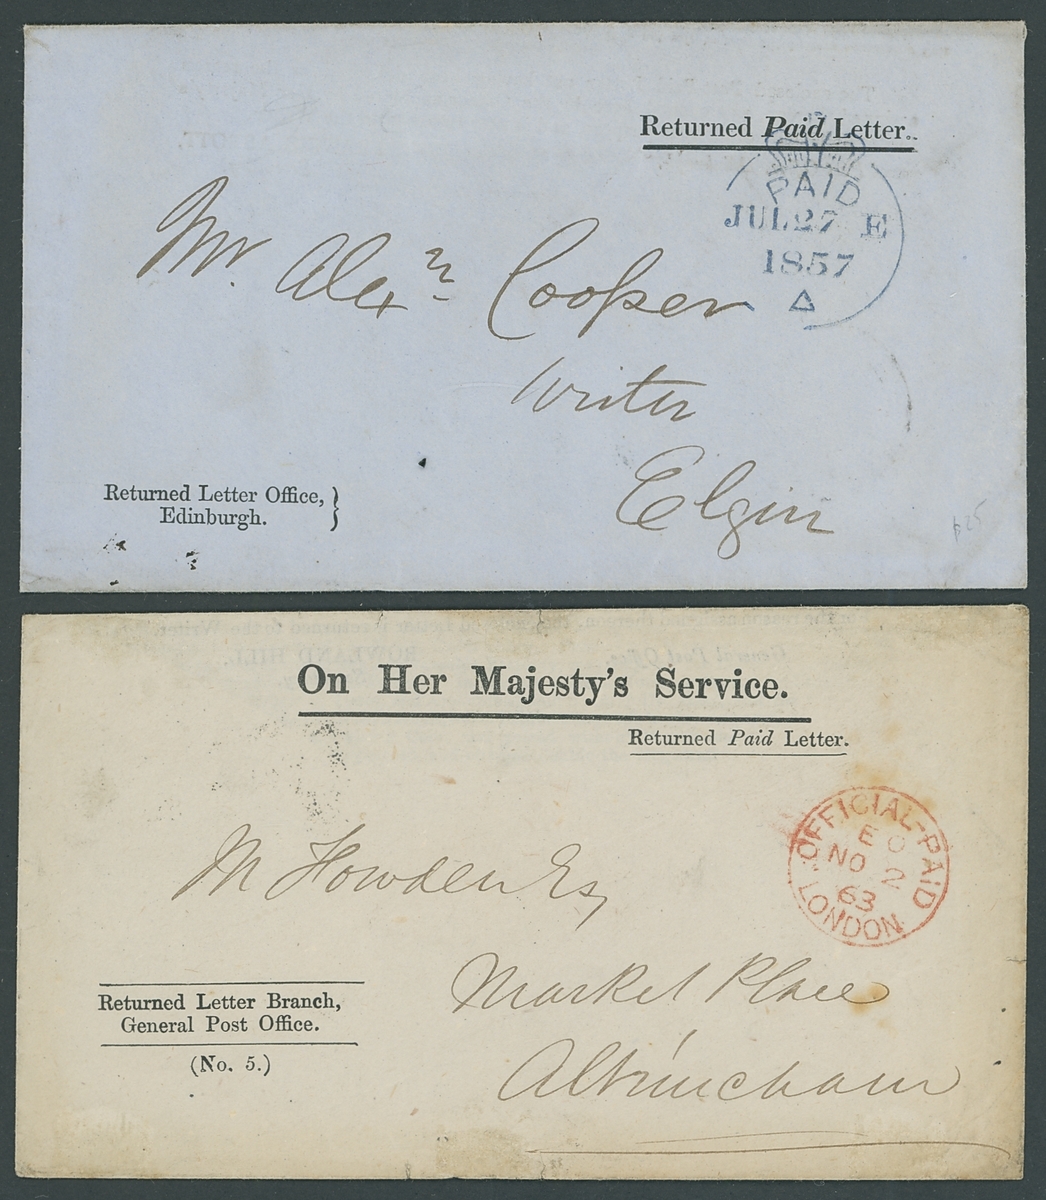 Returned Paid Letter.
PAID
JUL 27 E
1857
Mr. Alexr. Cooper
Writer
Elgin
Returned Letter Office,
Edinburgh.
£25
ROWLAND HILL
General Post Office
On Her Majesty's Service.
Returned Paid Letter.
OFFICIAL-PAID
E O
NO 2
63
LONDON
M Howden Esq
Market Place
Altrincham
Returned Letter Branch,
General Post Office.
(No. 5.)